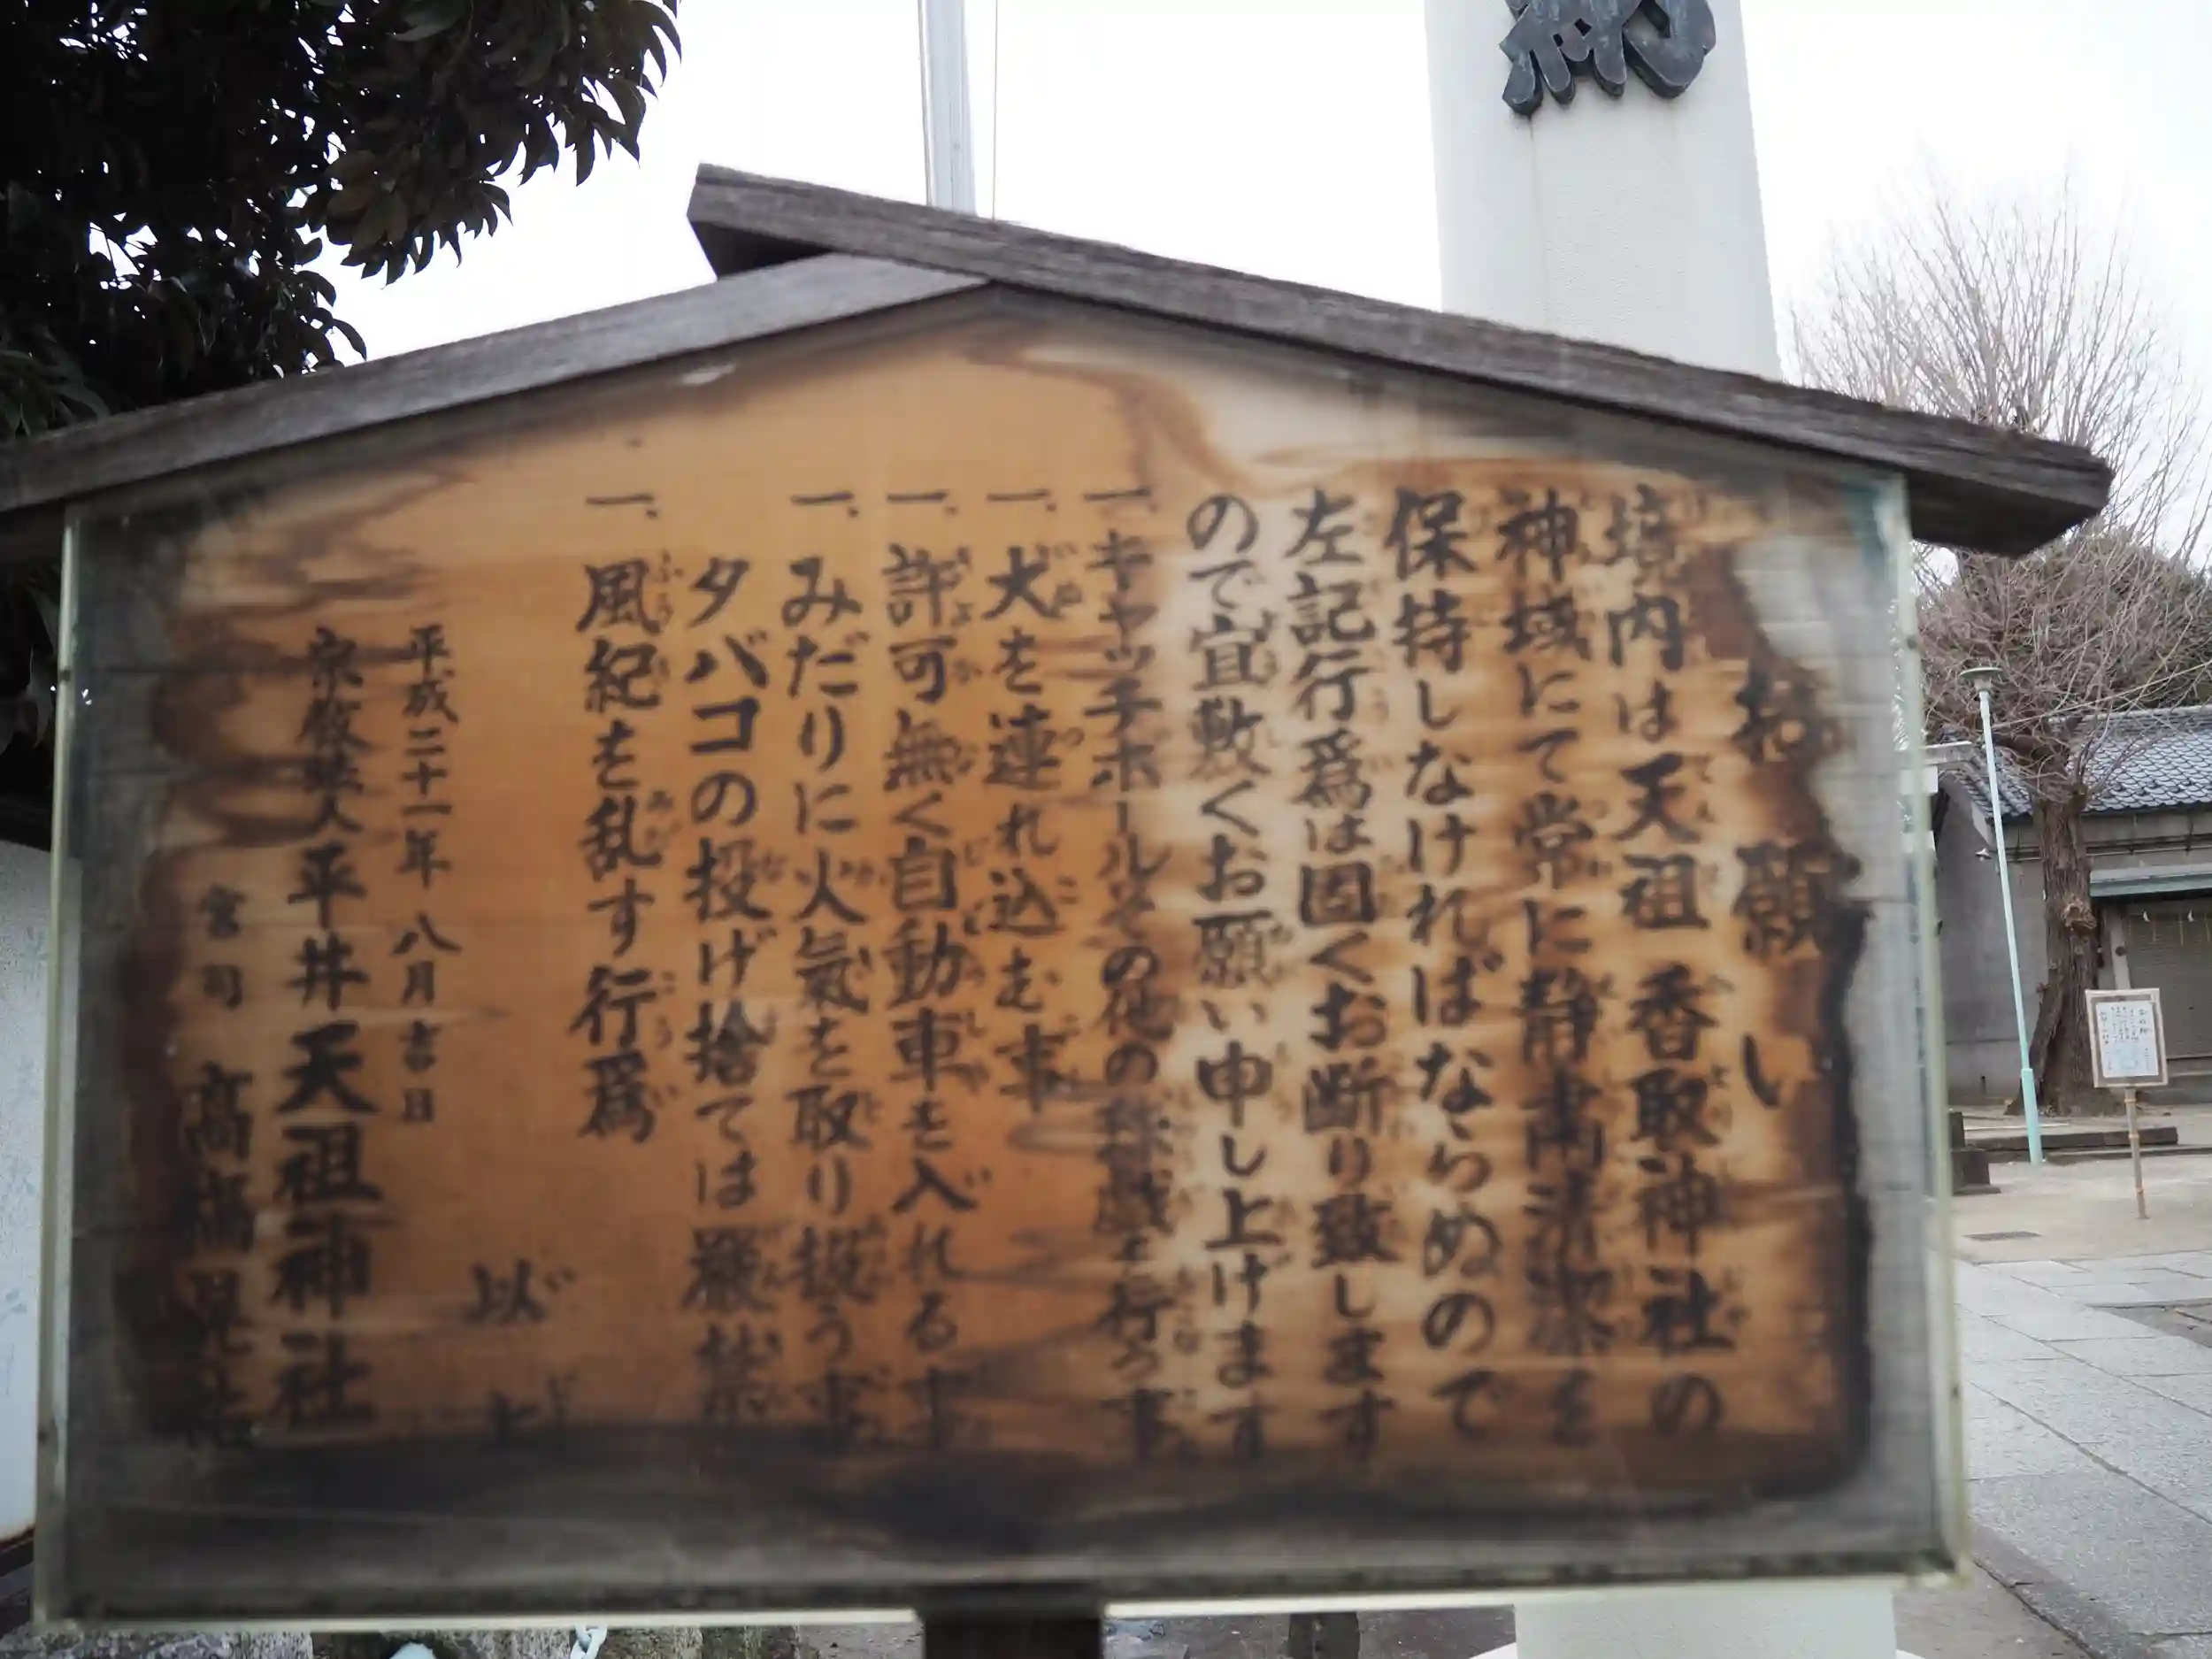 納
お願い
境内は天祖香取神社の
神域にて常に静粛清潔を
保持しなければならぬので
左記行為は固くお断り致します
ので宜敷くお願い申し上げます
一、キャッチボールその他の球戯を行う事
一、犬を連れ込む事
一、許可無く自動車を入れる事
一、みだりに火氣を取り扱う事
タバコの投げ捨ては嚴禁
一、風紀を乱す行爲
以上
平成二十一年八月吉日
宗教法人平井天祖神社
宮司 髙橋